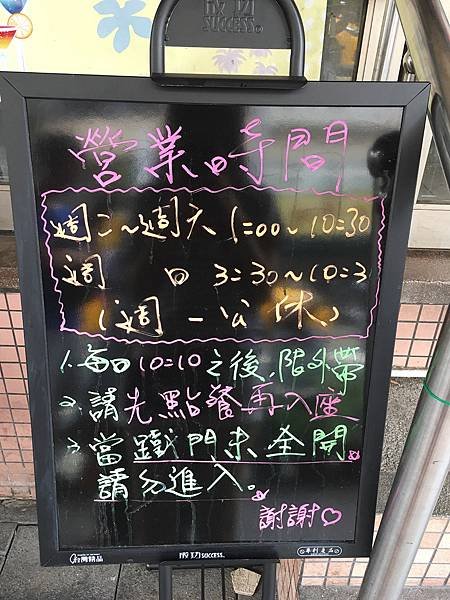 成功
SUCCESS®
營業時間
週二~週六 1:00~10:30
週 日 3:30~10:3
(週一公休)
1.每日10:10之後,限外帶
2.請先點餐再入座
3.當鐵門未全開
請勿進入。
謝謝♡
台灣精品
成功 SUCCESS.
專利產品